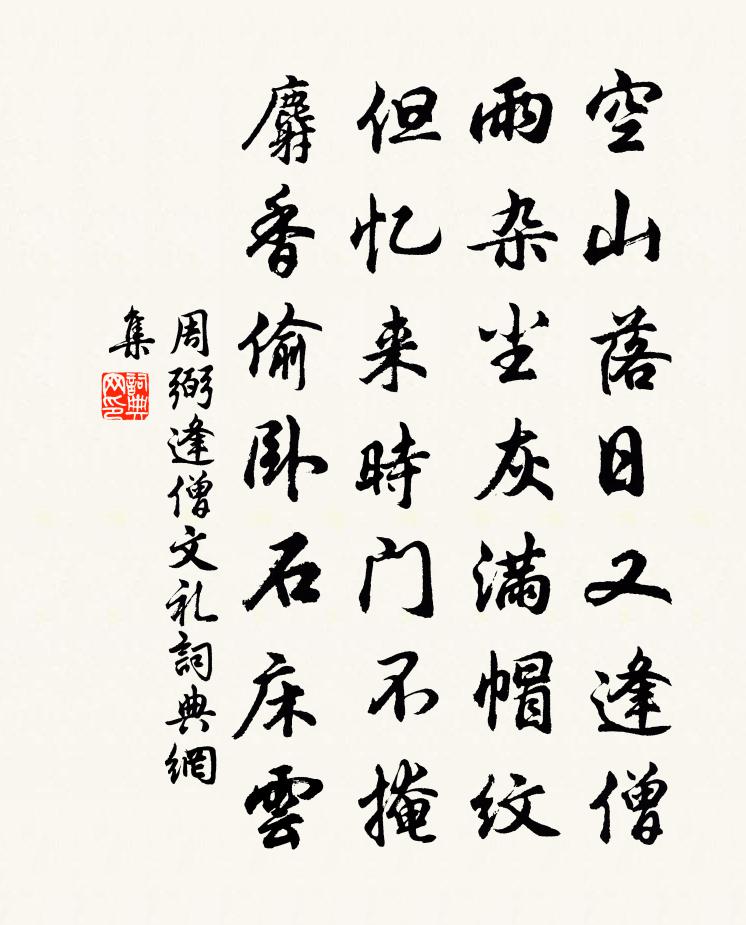 空山落日又逢僧
雨杂尘灰满帽纹
但忆来時门不掩
麝香偷卧石床雲
周弼逢僧文礼詞典網
集
詞典
网印